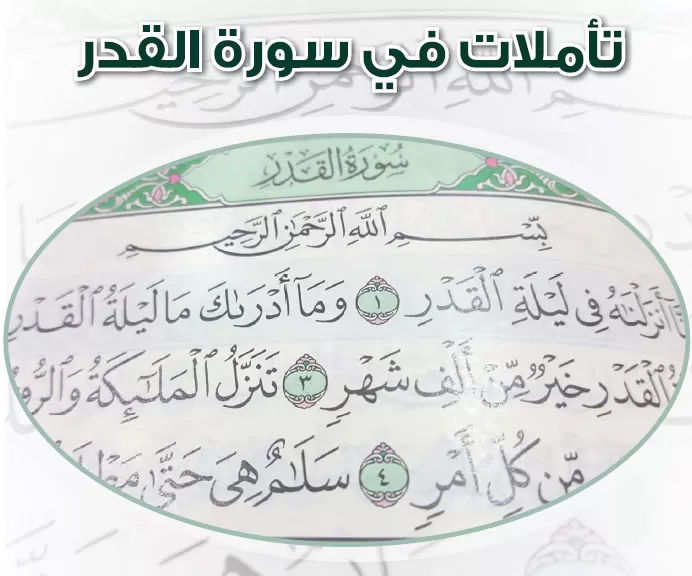 تأملات في سورة القدر
سُورَةُ القَدْرِ
بِسْمِ اللَّهِ الرَّحْمَٰنِ الرَّحِيمِ
أَنزَلْنَاهُ فِي لَيْلَةِ الْقَدْرِ ١ وَمَا أَدْرَاكَ مَا لَيْلَةُ الْقَدْرِ
الْقَدْرِ خَيْرٌ مِّنْ أَلْفِ شَهْرٍ ٣ تَنَزَّلُ الْمَلَائِكَةُ
مِّن كُلِّ أَمْرٍ ٤ سَلَامٌ هِيَ حَتَّىٰ